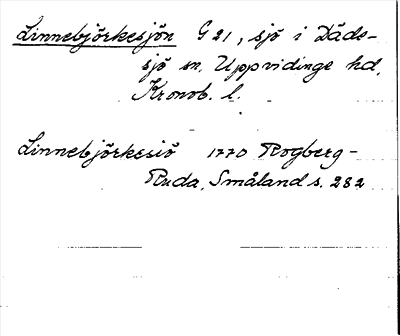 Linnebjörkesjön G 21, sjö i Däds-
sjö sn, Uppvidinge hd,
Kronob. l.
Linnebjörkesiö 1770 Rogberg-
Ruda, Småland s. 282